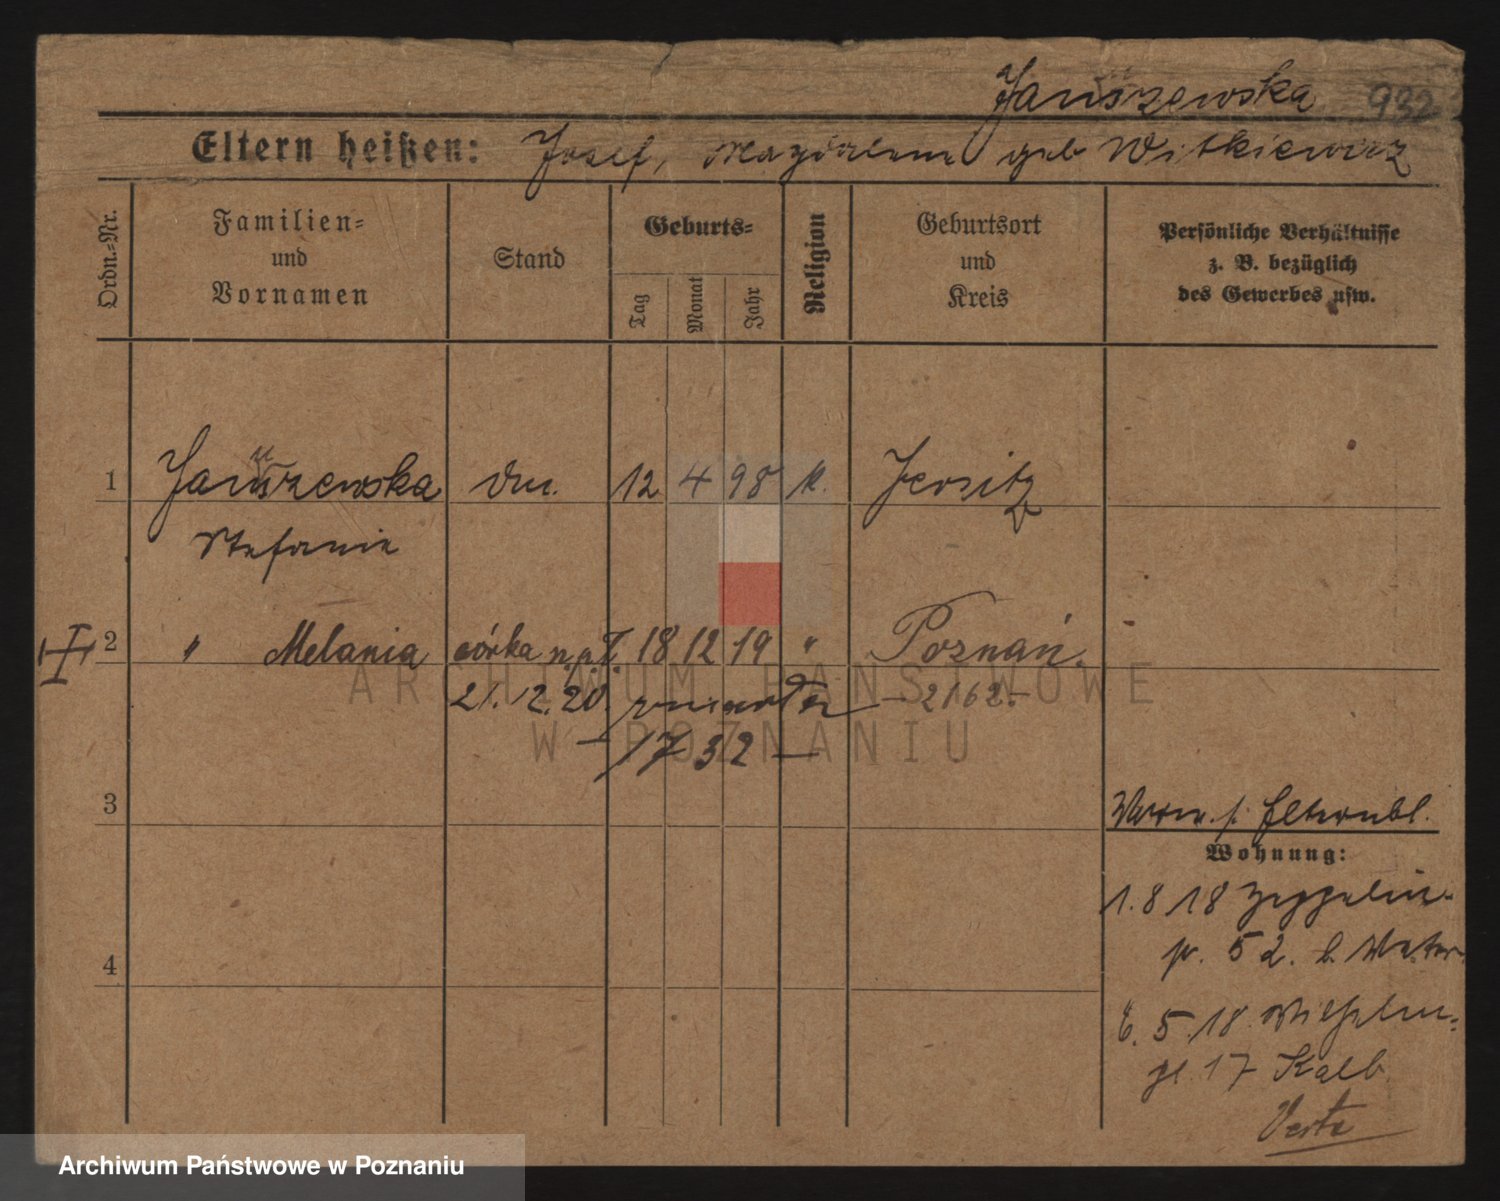 Januszewska 932
Eltern heißen: Josef, Magdalena geb Witkiewicz
Ordn.-Nr.
Familien-
und
Vornamen
Stand
Geburts-
Tag
Monat
Jahr
Religion
Geburtsort
und
Kreis
Persönliche Verhältnisse
z. B. bezüglich
des Gewerbes usw.
1 Januszewska 12 4 98 k. Jersitz
Stefanie
2 " Melania córka n.p.T. 18 12 19 " Poznań.
21.12.20. zmarła – 2162 –
– 1732 –
3
4
f. Elternbl.
Wohnung:
1.8 18 Zeppelin-
52. b. Vater
5.18. Wilhelm-
pl. 17 Kalb
Verte
ARCHIWUM PAŃSTWOWE
W POZNANIU
Archiwum Państwowe w Poznaniu